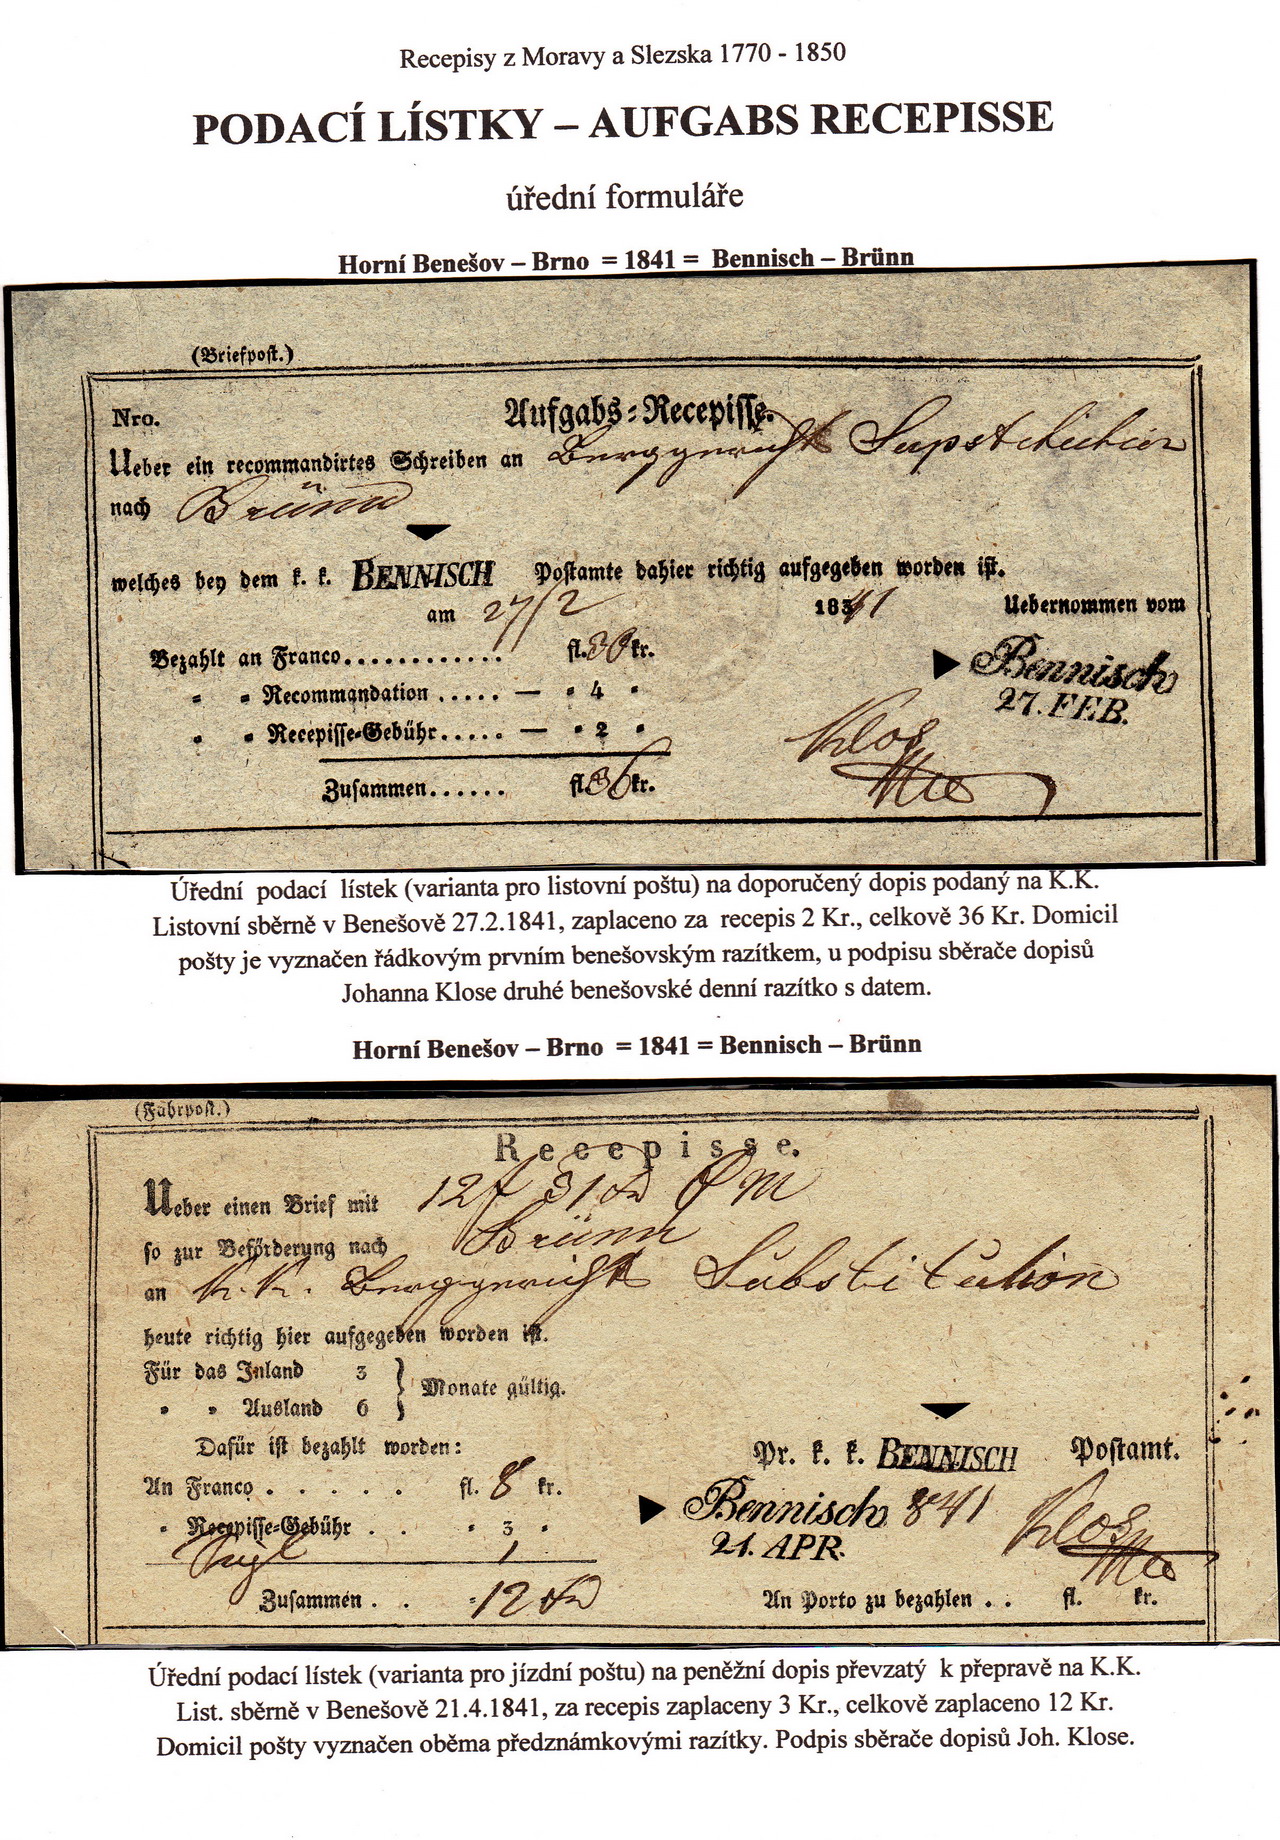 Recepisy z Moravy a Slezska 1770 - 1850
PODACÍ LÍSTKY – AUFGABS RECEPISSE
úřední formuláře
Horní Benešov – Brno = 1841 = Bennisch – Brünn
(Briefpost.)
Nro. Aufgabs-Recepisse.
Ueber ein recommandirtes Schreiben an Berggericht Supstitution
nach Brünn
welches bey dem k. k. BENNISCH Postamte dahier richtig aufgegeben worden ist.
am 27/2 1841 Uebernommen vom
Bezahlt an Franco............ fl. 30 kr.
" " Recommandation ..... — " 4 "
" " Recepisse-Gebühr..... — " 2 "
Zusammen...... fl. 36 kr.
Bennisch
27. FEB.
Klos
Úřední podací lístek (varianta pro listovní poštu) na doporučený dopis podaný na K.K.
Listovní sběrně v Benešově 27.2.1841, zaplaceno za recepis 2 Kr., celkově 36 Kr. Domicil
pošty je vyznačen řádkovým prvním benešovským razítkem, u podpisu sběrače dopisů
Johanna Klose druhé benešovské denní razítko s datem.
Horní Benešov – Brno = 1841 = Bennisch – Brünn
(Fahrpost.)
Recepisse.
Ueber einen Brief mit 12 f 31 CM
so zur Beförderung nach Brünn
an K. K. Berggericht Substitution
heute richtig hier aufgegeben worden ist.
Für das Inland 3
" " Ausland 6 } Monate gültig.
Dafür ist bezahlt worden:
Pr. k. k. BENNISCH Postamt.
An Franco . . . . . fl. 8 kr.
Bennisch 841 Klos
" Recepisse-Gebühr . . " 3 "
21. APR.
1
Zusammen . . " 12
An Porto zu bezahlen . . fl. kr.
Úřední podací lístek (varianta pro jízdní poštu) na peněžní dopis převzatý k přepravě na K.K.
List. sběrně v Benešově 21.4.1841, za recepis zaplaceny 3 Kr., celkově zaplaceno 12 Kr.
Domicil pošty vyznačen oběma předznámkovými razítky. Podpis sběrače dopisů Joh. Klose.